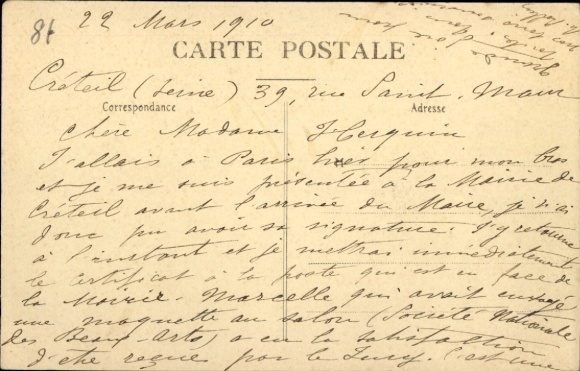 81
22 Mars 1910
CARTE POSTALE
Créteil (Seine) 39, rue Saint-Maur
Correspondance
Adresse
Chère Madame
J'allais à Paris hier pour mon bras
et je me suis présentée à la Mairie de
Créteil avant l'arrivée du Maire, je n'ai
donc pu avoir sa signature. J'y retourne
à l'instant et je mettrai immédiatement
le certificat à la poste qui est en face de
la Mairie. Marcelle qui avait envoyé
une maquette au salon (Société Nationale
des Beaux-Arts) a eu la satisfaction
d'être reçue par le Jury. C'est une